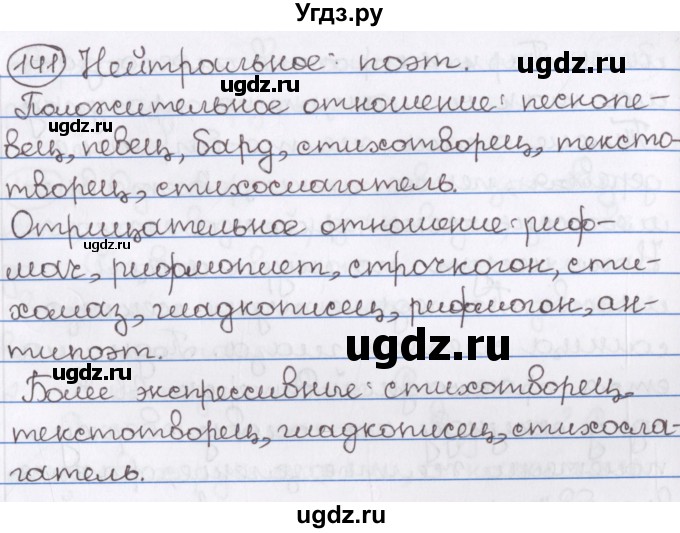 Угдз.ру
141 Нейтральное: поэт.
ugdz.ru
Положительное отношение: песнопе-
ugdz.ru
вец, певец, бард, стихотворец, тексто-
творец, стихослагатель.
Отрицательное отношение: риф-
ugdz.ru
мач, рифмоплет, строчкогон, сти-
хомаз, гладкописец, рифмогон, ан-
типоэт.
ugdz.ru
ugdz.ru
Более экспрессивные: стихотворец,
текстотворец, гладкописец, стихосла-
гатель.
ugdz.ru
ugdz.ru